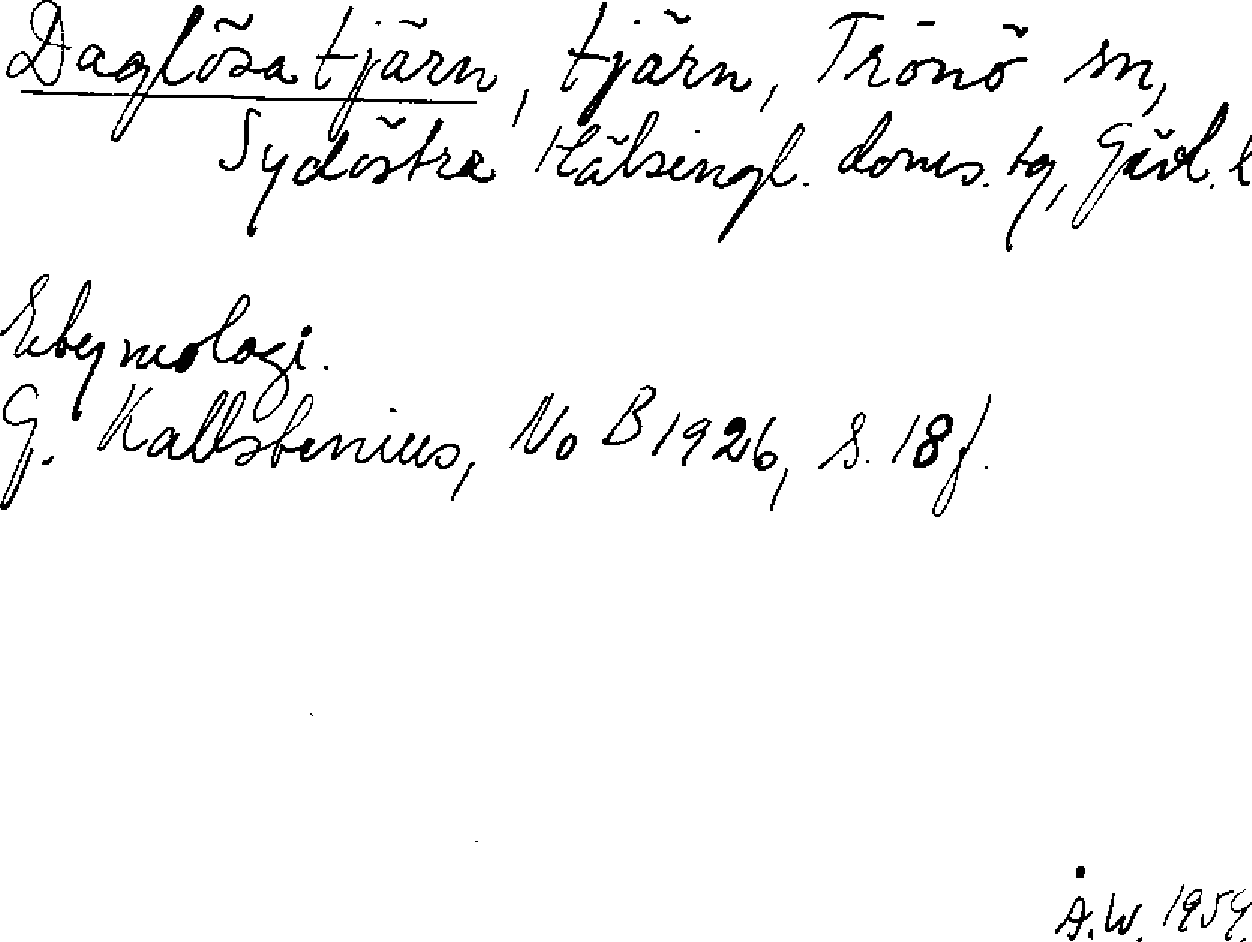 Daglösa tjärn, tjärn, Trönö sn,
Sydöstra Hälsingl. doms. tg, Gävl. l
Etymologi.
G. Kallstenius, No B 1926, s. 18 f.
Å. W. 1959.